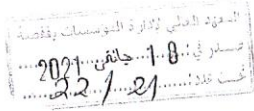 المعهد العالي لإدارة المؤسسات بقفصة
صدر في: 18 جانفي 2021
تحت عدد: 21 / 22